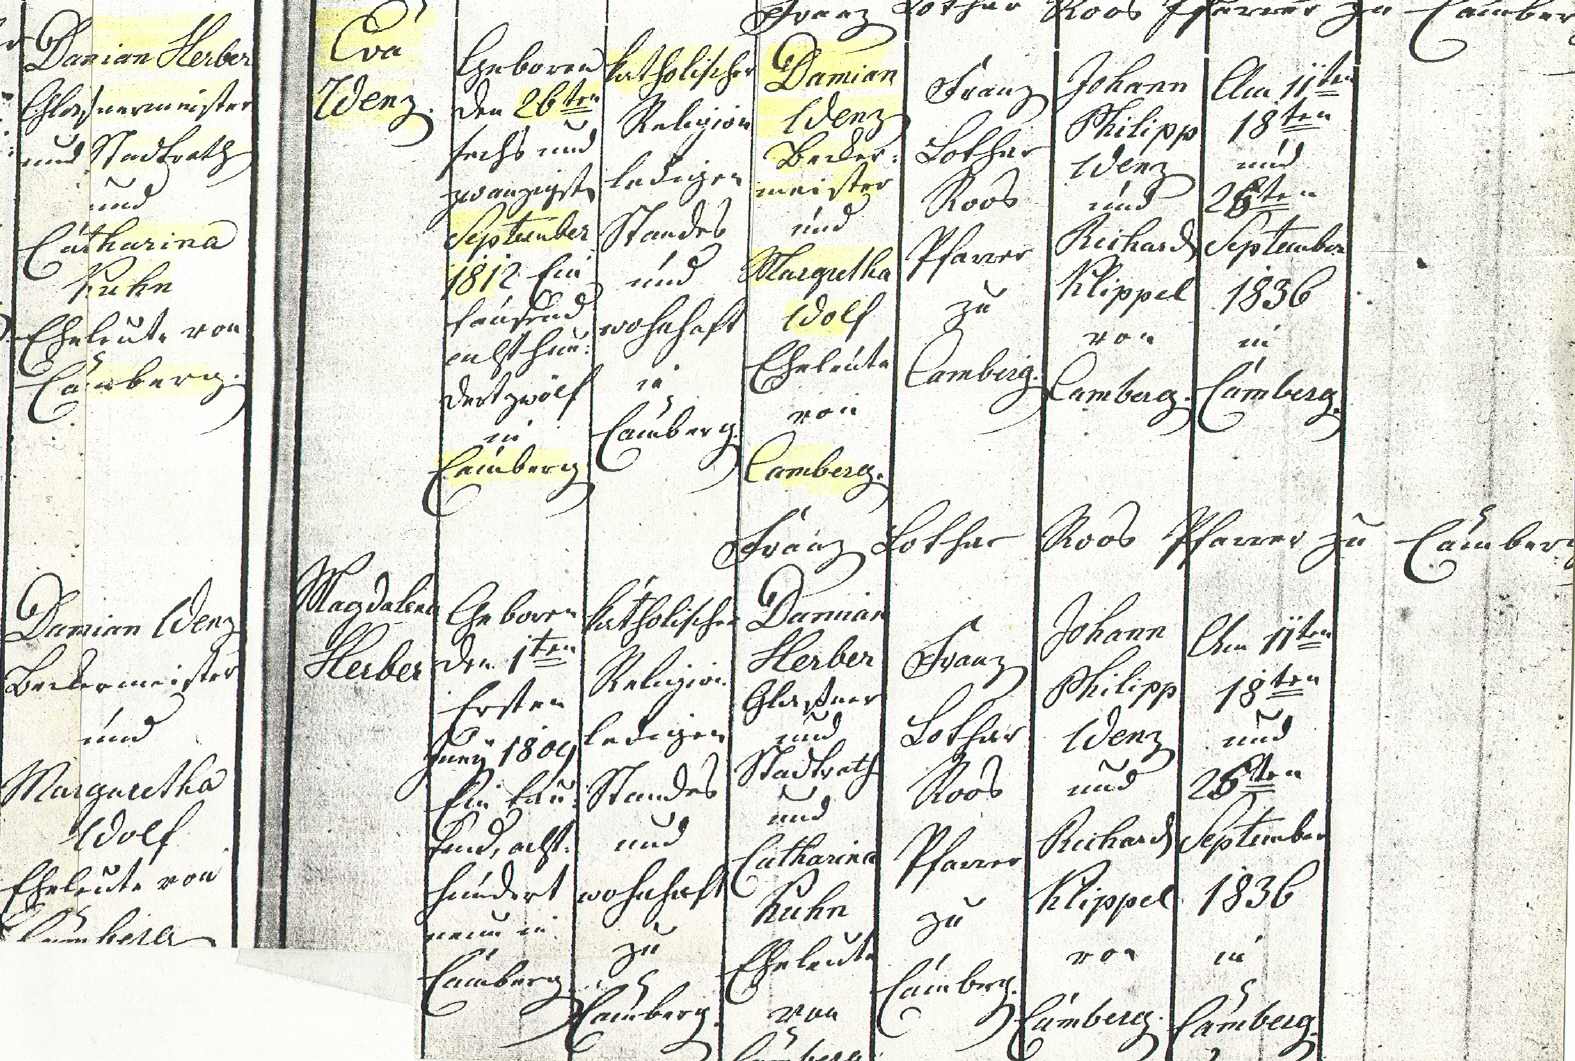 Franz Lothar Roos Pfarrer zu Camberg
Damian Herber
Glasnermeister
und Stadtrath
und
Catharina
Kuhn
Eheleute von
Camberg.
Eva
Wenz.
Geboren
den 26ten
sechs und
zwanzigst
September
1812 Ein
tausend
achthun:
dertzwölf
in
Camberg
katholischer
Religion
ledigen
Standes
und
wohnhaft
in
Camberg.
Damian
Wenz
Becker:
meister
und
Margretha
Wolf
Eheleute
von
Camberg.
Franz
Lothar
Roos
Pfarrer
zu
Camberg.
Johann
Philipp
Wenz
und
Richard
Klippel
von
Camberg.
Am 11ten
18ten
und
26ten
September
1836
in
Camberg.
Franz Lothar Roos Pfarrer zu Camberg
Damian Wenz
Beckermeister
und
Margaretha
Wolf
Eheleute von
Camberg
Magdalena
Herber
Geboren
den 1ten
Ersten
Juny 1809
Ein tau:
send, acht:
hundert
neun in
Camberg
katholischer
Religion
ledigen
Standes
und
wohnhaft
zu
Camberg.
Damian
Herber
Glasner
und
Stadtrath
und
Catharina
Kuhn
Eheleute
von
Camberg
Franz
Lothar
Roos
Pfarrer
zu
Camberg.
Johann
Philipp
Wenz
und
Richard
Klippel
von
Camberg.
Am 11ten
18ten
und
26ten
September
1836
in
Camberg.